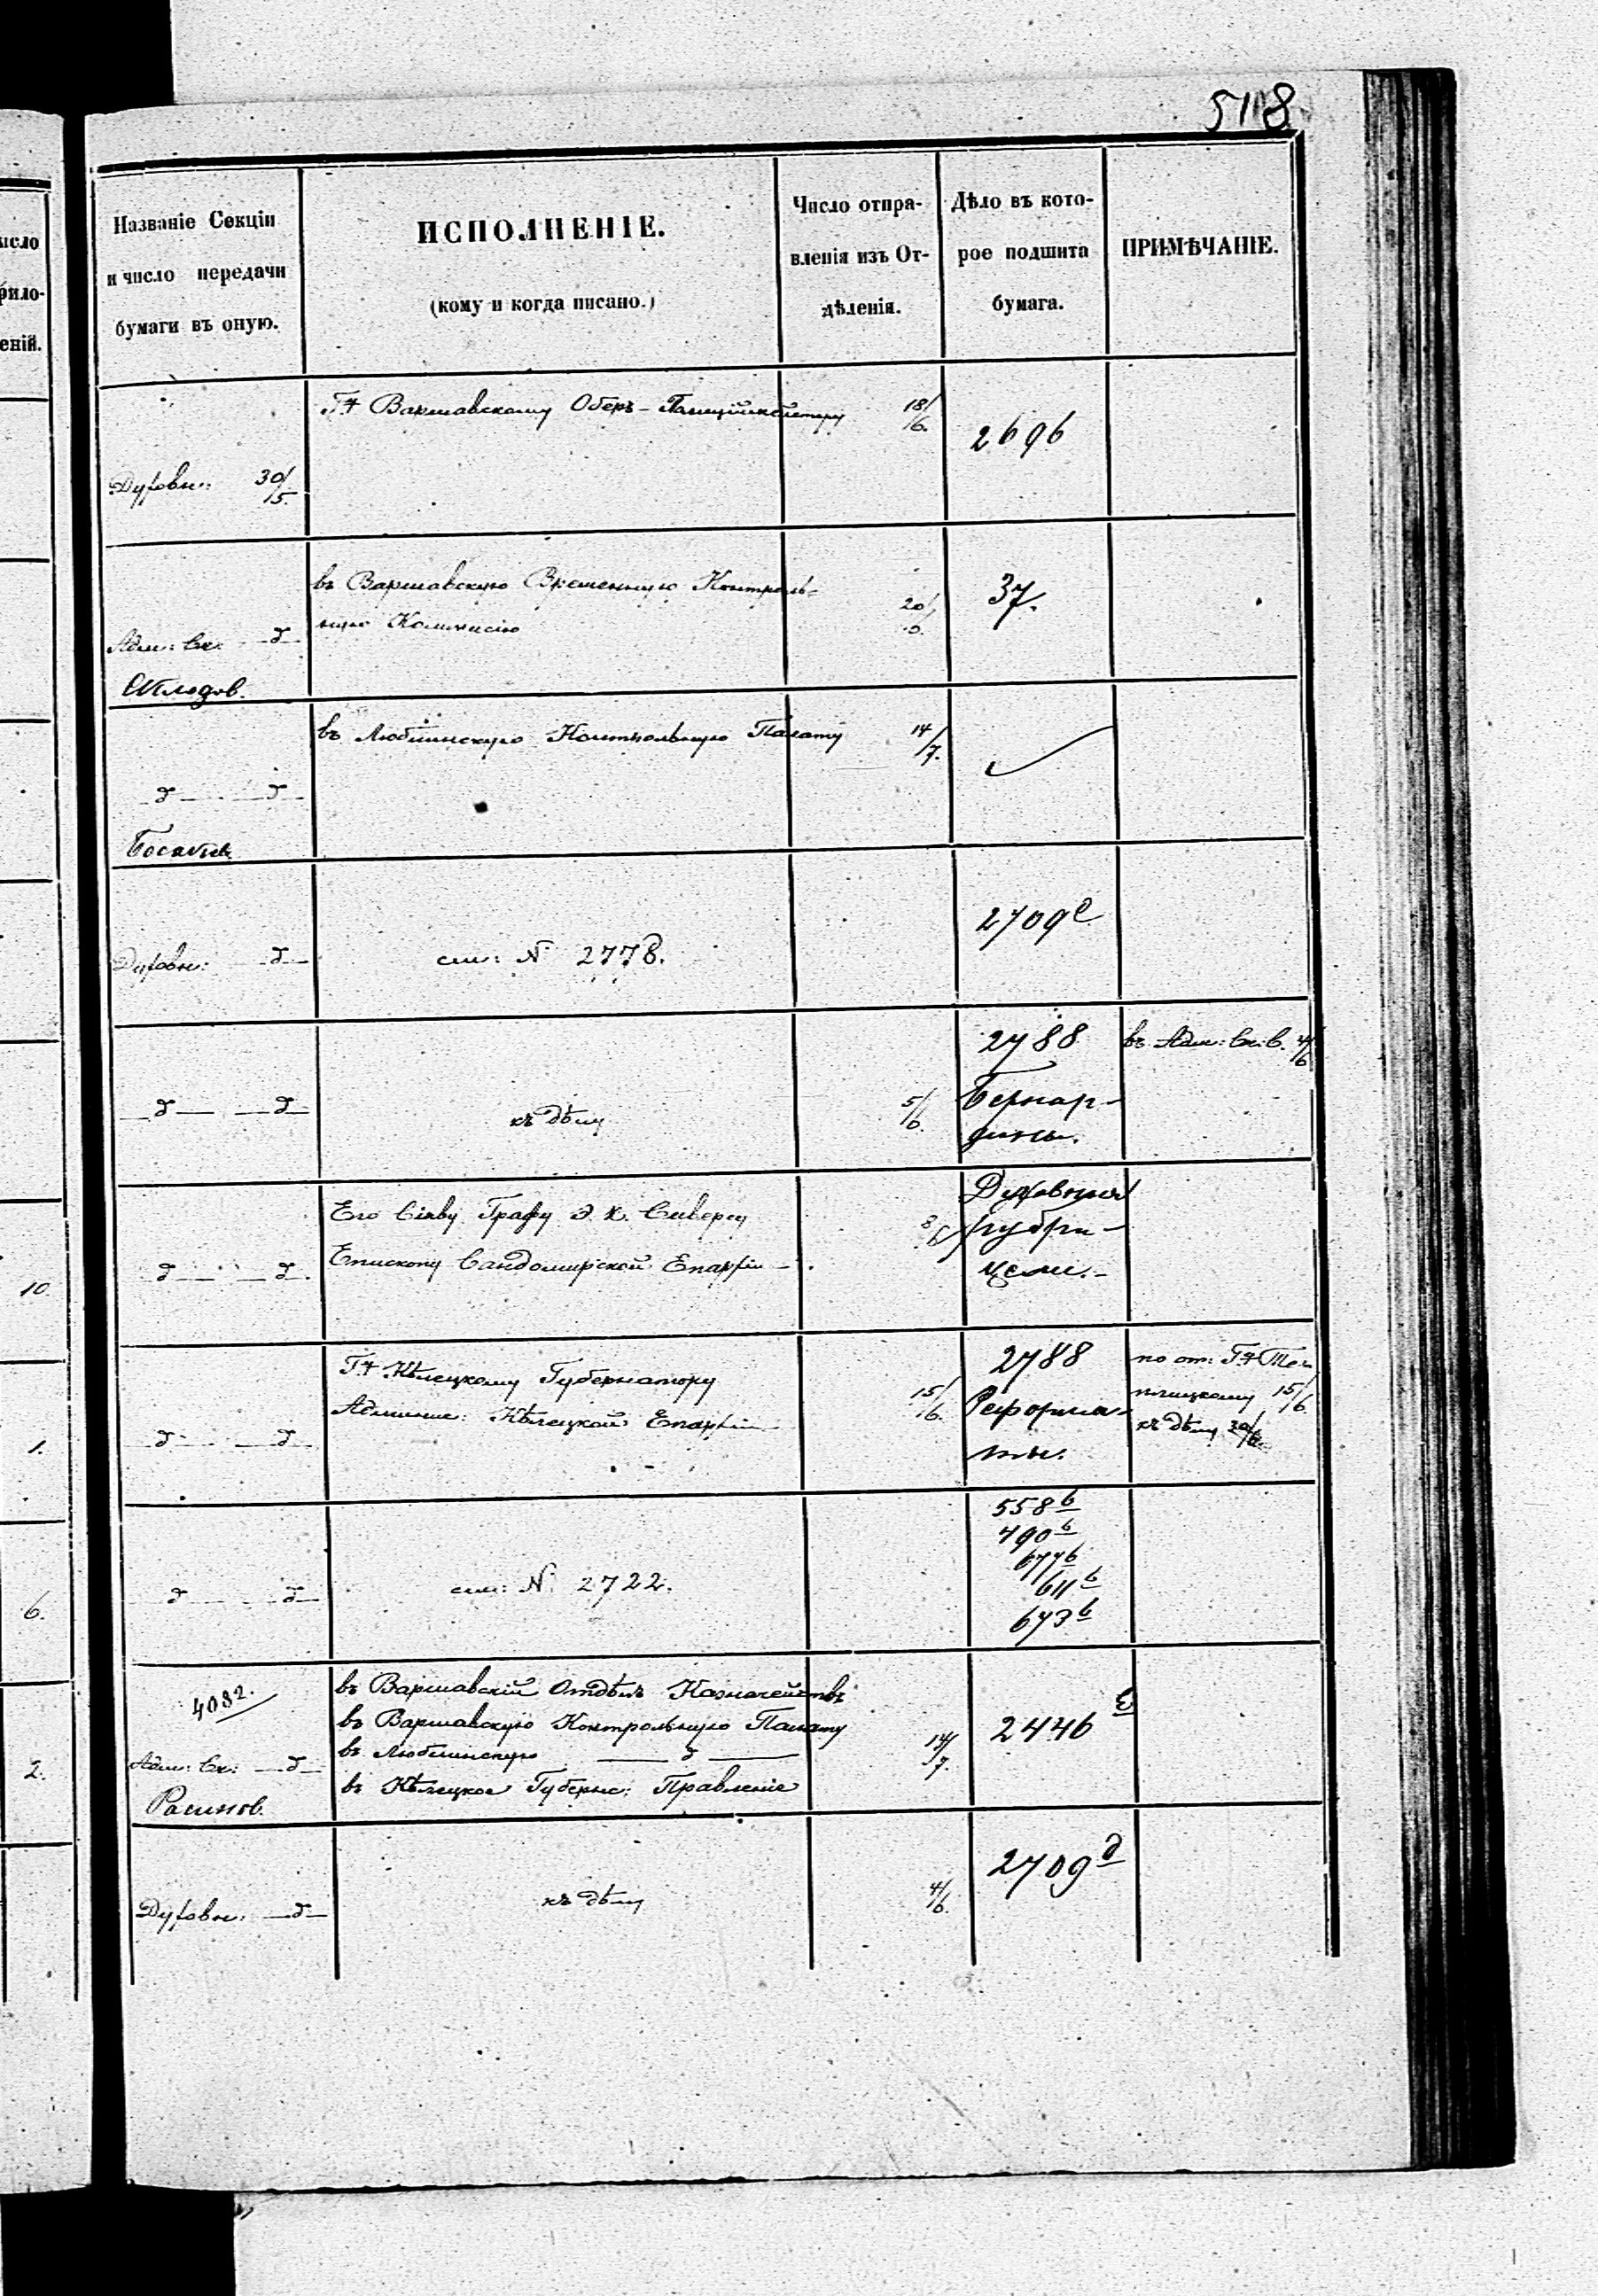 518
исло
рило-
еній.
10
1.
6.
2.
Названіе Секціи
и число передачи
бумаги въ оную.
ИСПОЛНЕНІЕ.
(кому и когда писано.)
Число отпра-
вленія изъ От-
дѣленія.
Дѣло въ кото-
рое подшита
бумага.
ПРИМѢЧАНІЕ.
Духовн: 30/5.
Гну Варшавскому Оберъ-Полиціймейстеру
18/6.
2696
Адм: Ск: —д—
въ Варшавскую Временную Контроль-
ную Коммисію
20/6.
37.
—д— —д—
въ Люблинскую Контрольную Палату
14/7.
Духовн: —д—
см: № 2778.
2709 е
—д— —д—
къ дѣлу
5/6.
2788
Бернар-
дины.
въ Адм: Ск: В. 4/6
—д— —д—
Его Сіяву Графу Э. К. Сиверсу
Епископу Сандомирской Епархіи
8/6
Духовныя
рубри-
цели.
—д— —д—
Гну Кѣлецкому Губернатору
Админис: Кѣлецкой Епархіи
15/6.
2788
Реформа-
ты.
по от: Гну
15/6
къ дѣлу
—д— —д—
см: № 2722.
558 б
490 б
677 б
611 б
673 б
4032.
Адм: Ск: —д—
въ Варшавскій Отдѣлъ Казначействъ
въ Варшавскую Контрольную Палату
въ Люблинскую —д—
въ Кѣлецкое Губернс: Правленіе
14/7.
2446
Духовн: —д—
къ дѣлу
4/6.
2709 д